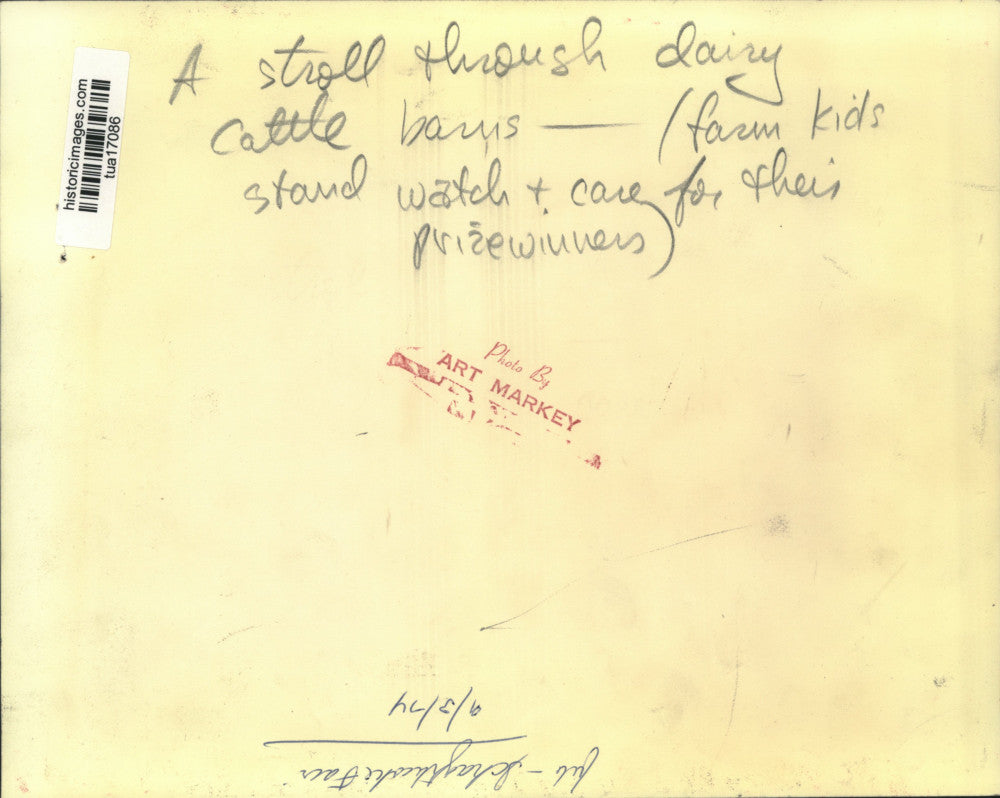 A stroll through dairy
cattle barns — (farm kids
stand watch + care for their
prizewinners)
historicimages.com
tua17086
Photo By
ART MARKEY
9/3/74